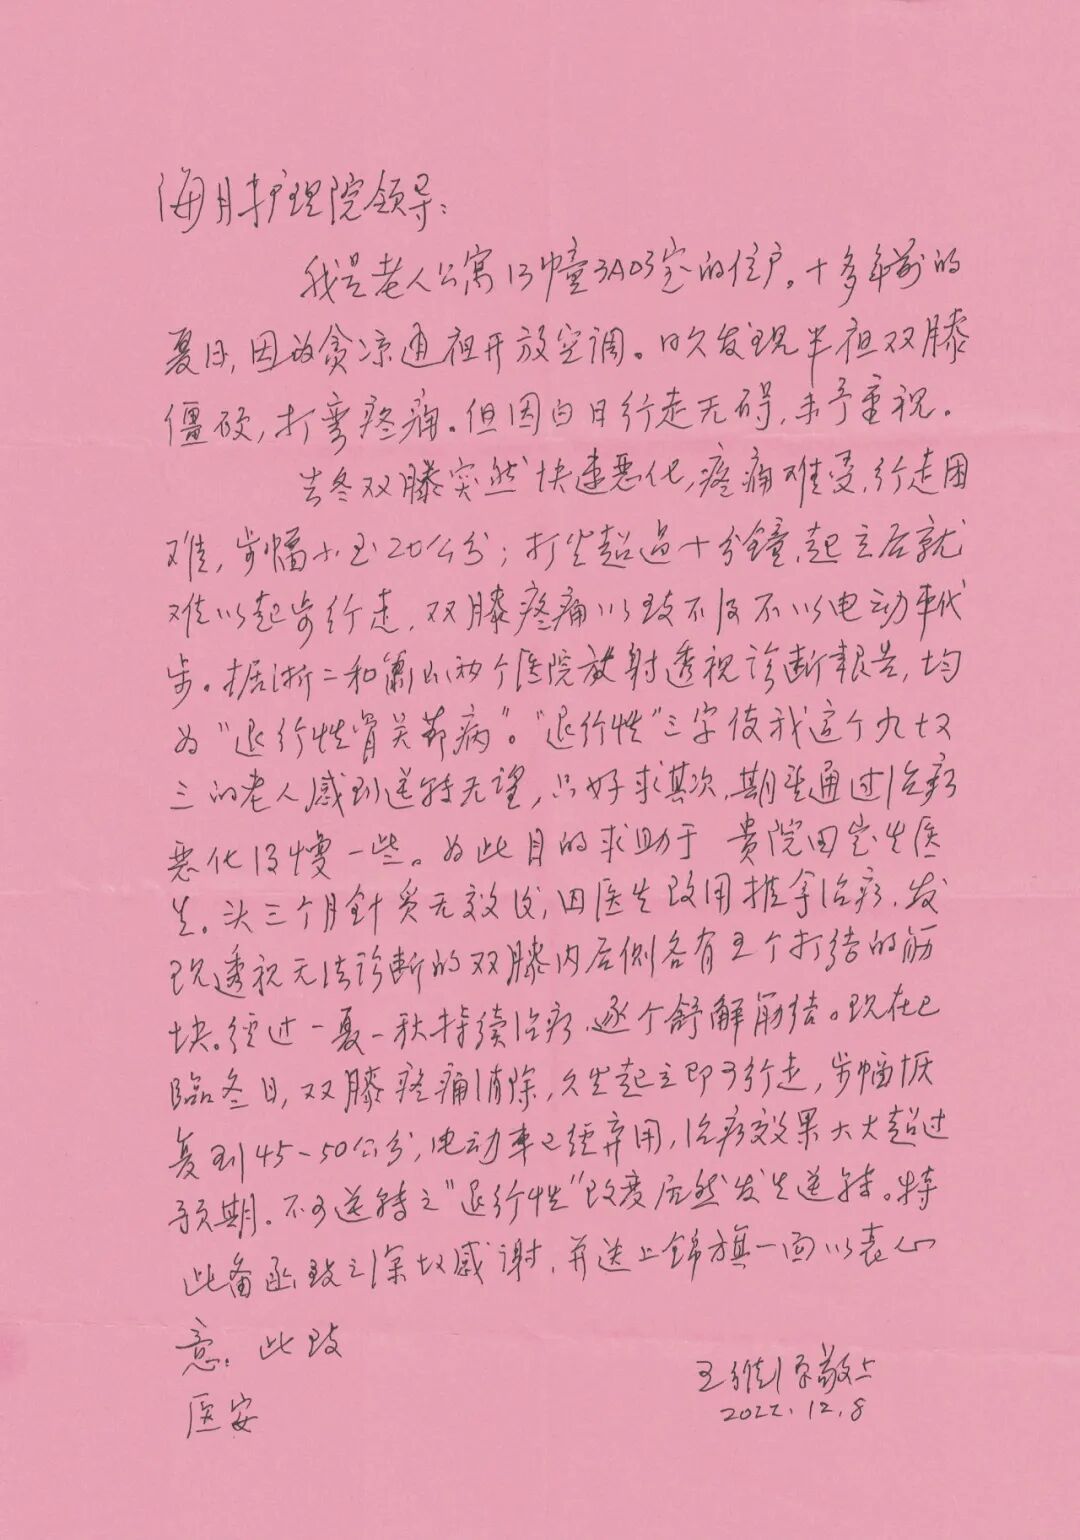 海月护理院领导：
我是老人公寓13幢3A03室的住户。十多年前的
夏日，因为贪凉通宵开放空调。日久发现半夜双膝
僵硬，打弯疼痛。但因白日行走无碍，未予重视。
去冬双膝突然快速恶化，疼痛难受，行走困
难，步幅小至20公分；打坐超过十分钟，起立后就
难以起步行走，双膝疼痛以致不得不以电动车代
步。据浙二和萧山两个医院放射透视诊断报告，均
为“退行性骨关节病”。“退行性”三字使我这个九十又
三的老人感到逆转无望，只好求其次，期望通过治疗
恶化得慢一些。为此目的求助于 贵院田宝生医
生。头三个月针灸无效后，田医生改用推拿治疗，发
现透视无法诊断的双膝内后侧各有五个打结的筋
块。经过一夏一秋持续治疗，逐个舒解筋结。现在已
临冬日，双膝疼痛消除，久坐起立即可行走，步幅恢
复到45-50公分，电动车已经弃用，治疗效果大大超过
预期。不可逆转之“退行性”改变居然发生逆转。特
此备函致之深切感谢，并送上锦旗一面以表心
意。此致
医安
王 敬上
2022.12.8